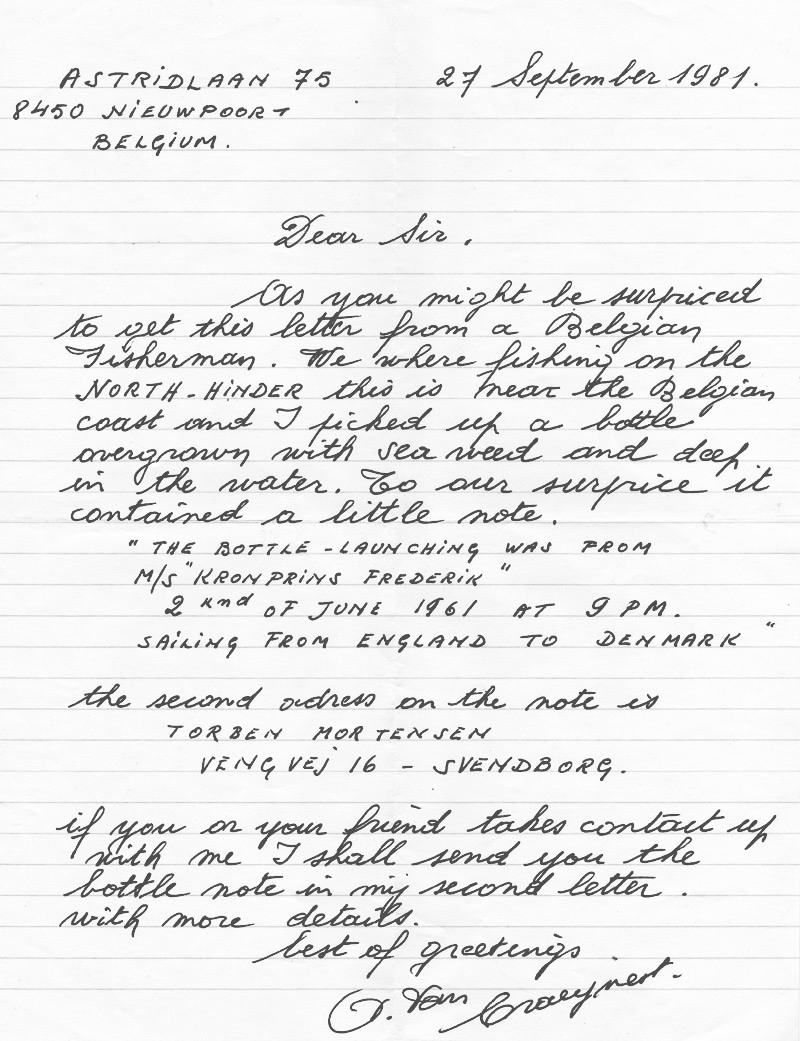 ASTRIDLAAN 75
27 September 1981.
8450 NIEUWPOORT
BELGIUM.
Dear Sir,
As you might be surpriced
to get this letter from a Belgian
Fisherman. We where fishing on the
NORTH-HINDER this is near the Belgian
coast and I picked up a bottle
overgrown with sea weed and deep
in the water. To our surprice it
contained a little note.
" THE BOTTLE-LAUNCHING WAS FROM
M/S "KRONPRINS FREDERIK"
2 nd OF JUNE 1961 AT 9 PM.
SAILING FROM ENGLAND TO DENMARK "
the second adress on the note is
TORBEN MORTENSEN
VENGVEJ 16 - SVENDBORG.
if you or your friend takes contact up
with me I shall send you the
bottle note in my second letter.
with more details.
best of greetings
Van